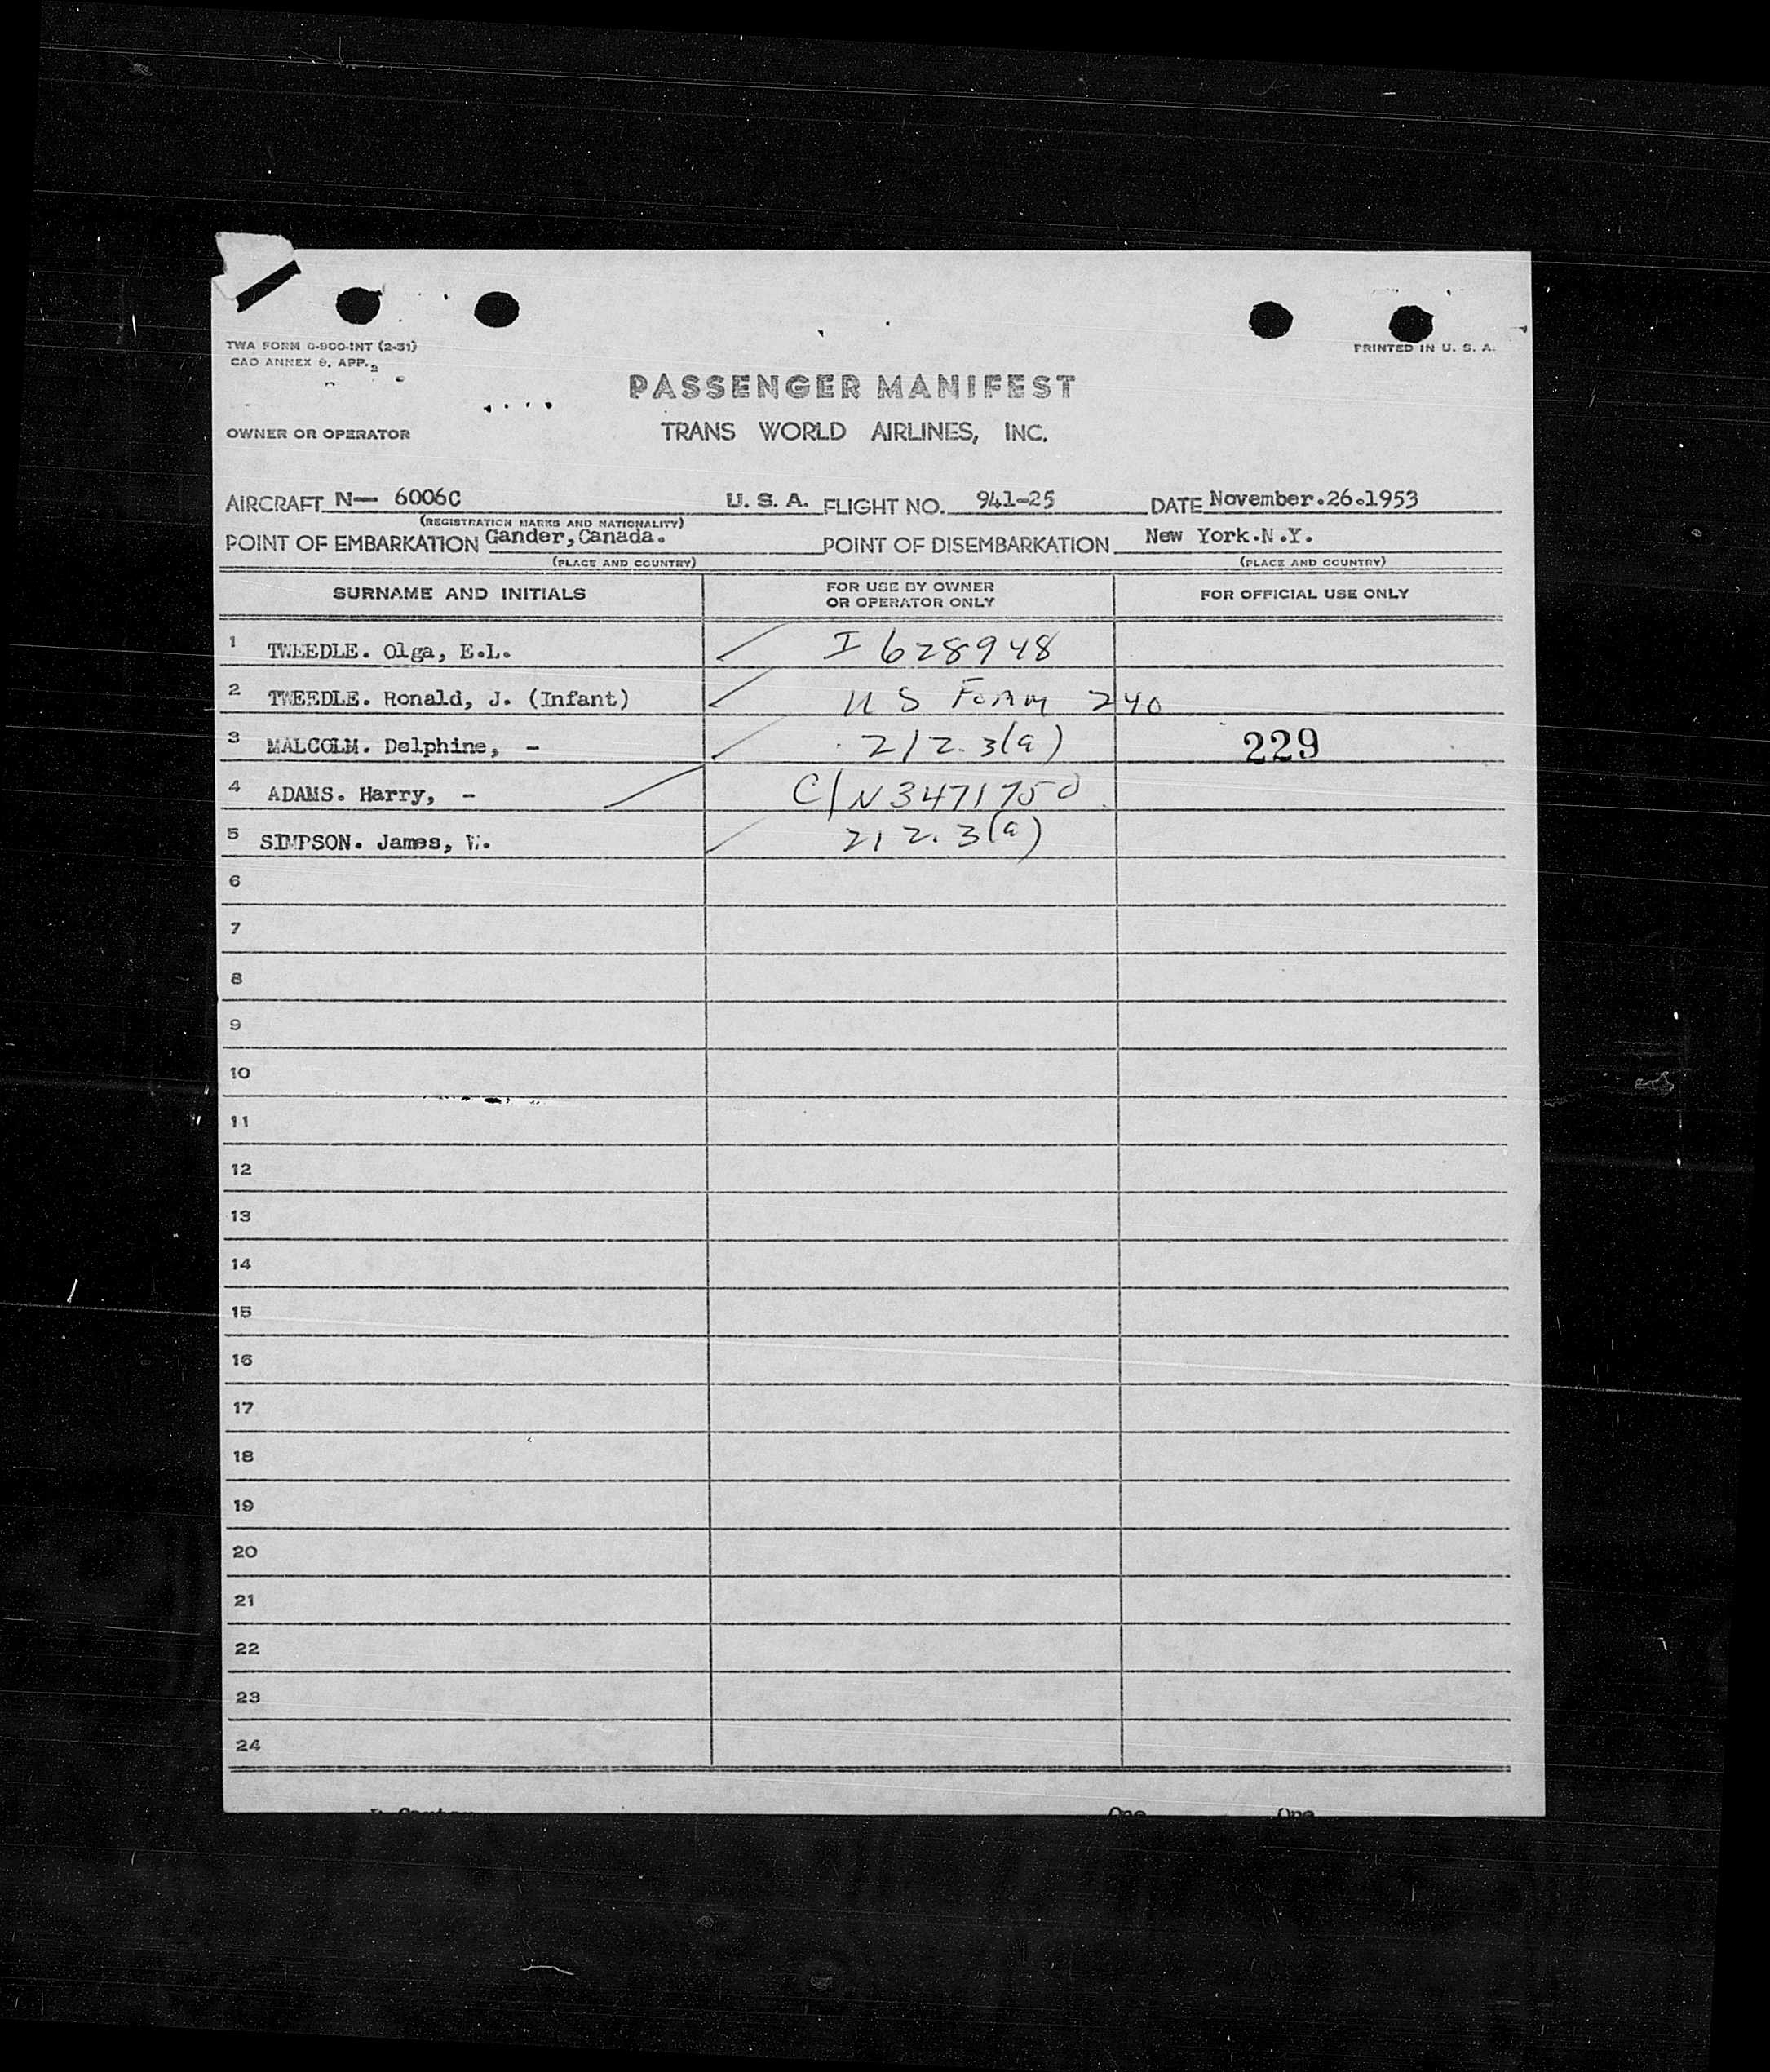 TWA FORM 0-900-INT (2-51)
PRINTED IN U. S. A.
CAO ANNEX 9, APP. 2
PASSENGER MANIFEST
OWNER OR OPERATOR TRANS WORLD AIRLINES, INC.
AIRCRAFT N— 6006C U. S. A. FLIGHT NO. 941-25 DATE November.26.1953
(REGISTRATION MARKS AND NATIONALITY)
POINT OF EMBARKATION Gander,Canada. POINT OF DISEMBARKATION New York.N.Y.
(PLACE AND COUNTRY) (PLACE AND COUNTRY)
SURNAME AND INITIALS FOR USE BY OWNER OR OPERATOR ONLY FOR OFFICIAL USE ONLY
1 TWEEDLE. Olga, E.L. I 628948
2 TWEEDLE. Ronald, J. (Infant) US FORM 240
3 MALCOLM. Delphine, - 212.3(a) 229
4 ADAMS. Harry, - C/N 3471750
5 SIMPSON. James, W. 212.3(a)
6
7
8
9
10
11
12
13
14
15
16
17
18
19
20
21
22
23
24
One One